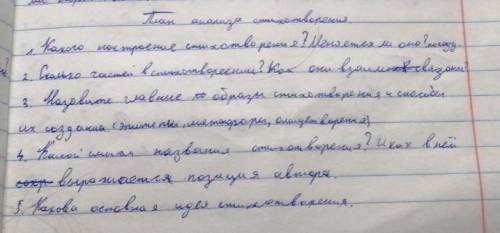 План анализа стихотворения.
1. Какого настроение стихотворения? Меняется ли оно?
2. Сколько частей в стихотворении? Как они взаимосвязаны?
3. Назовите главные образы стихотворения и способы
их создания (эпитеты, метафоры, олицетворения)
4. Какой смысл названия стихотворения? И как в ней
выражается позиция автора.
5. Какова основная идея стихотворения.